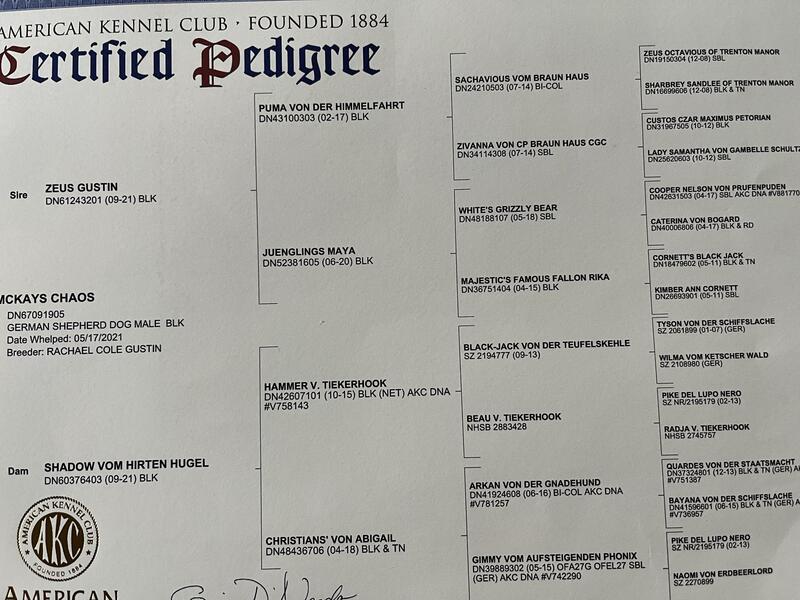 AMERICAN KENNEL CLUB · FOUNDED 1884
Certified Pedigree
Sire
ZEUS GUSTIN
DN61243201 (09-21) BLK
MCKAYS CHAOS
DN67091905
GERMAN SHEPHERD DOG MALE BLK
Date Whelped: 05/17/2021
Breeder: RACHAEL COLE GUSTIN
Dam
SHADOW VOM HIRTEN HUGEL
DN60376403 (09-21) BLK
AMERICAN KENNEL CLUB
AKC
FOUNDED 1884
AMERICAN
PUMA VON DER HIMMELFAHRT
DN43100303 (02-17) BLK
JUENGLINGS MAYA
DN52381605 (06-20) BLK
HAMMER V. TIEKERHOOK
DN42607101 (10-15) BLK (NET) AKC DNA
#V758143
CHRISTIANS' VON ABIGAIL
DN48436706 (04-18) BLK & TN
SACHAVIOUS VOM BRAUN HAUS
DN24210503 (07-14) BI-COL
ZIVANNA VON CP BRAUN HAUS CGC
DN34114308 (07-14) SBL
WHITE'S GRIZZLY BEAR
DN48188107 (05-18) SBL
MAJESTIC'S FAMOUS FALLON RIKA
DN36751404 (04-15) BLK
BLACK-JACK VON DER TEUFELSKEHLE
SZ 2194777 (09-13)
BEAU V. TIEKERHOOK
NHSB 2883428
ARKAN VON DER GNADEHUND
DN41924608 (06-16) BI-COL AKC DNA
#V781257
GIMMY VOM AUFSTEIGENDEN PHONIX
DN39889302 (05-15) OFA27G OFEL27 SBL
(GER) AKC DNA #V742290
ZEUS OCTAVIOUS OF TRENTON MANOR
DN19150304 (12-08) SBL
SHARBREY SANDLEE OF TRENTON MANOR
DN16699606 (12-08) BLK & TN
CUSTOS CZAR MAXIMUS PETORIAN
DN31967505 (10-12) BLK
LADY SAMANTHA VON GAMBELLE SCHULTZ
DN25620603 (10-12) SBL
COOPER NELSON VON PRUFENPUDEN
DN42631503 (04-17) SBL AKC DNA #V881770
CATERINA VON BOGARD
DN40006806 (04-17) BLK & RD
CORNETT'S BLACK JACK
DN18479602 (05-11) BLK & TN
KIMBER ANN CORNETT
DN26693901 (05-11) SBL
TYSON VON DER SCHIFFSLACHE
SZ 2061899 (01-07) (GER)
WILMA VOM KETSCHER WALD
SZ 2108980 (GER)
PIKE DEL LUPO NERO
SZ NR/2195179 (02-13)
RADJA V. TIEKERHOOK
NHSB 2745757
QUARDES VON DER STAATSMACHT
DN37324801 (12-13) BLK & TN (GER) A
#V751387
BAYANA VON DER SCHIFFSLACHE
DN41596601 (06-15) BLK & TN (GER) A
#V736957
PIKE DEL LUPO NERO
SZ NR/2195179 (02-13)
NAOMI VON ERDBEERLORD
SZ 2270899